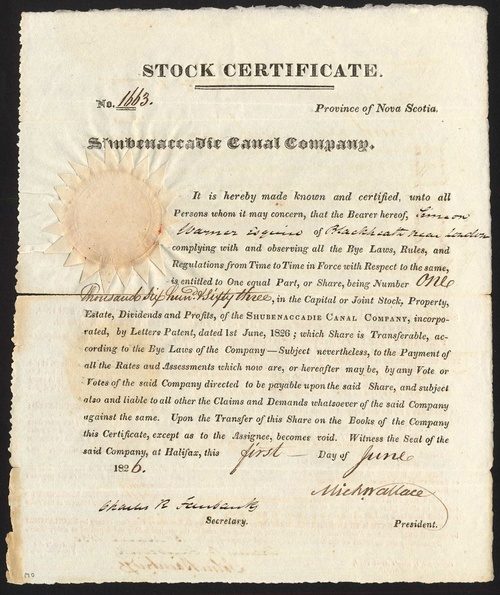 STOCK CERTIFICATE.
No. 1663.
Province of Nova Scotia.
Shubenaccadie Canal Company.
It is hereby made known and certified, unto all
Persons whom it may concern, that the Bearer hereof, Simeon
Warner Esquire of Blackheath near London
complying with and observing all the Bye Laws, Rules, and
Regulations from Time to Time in Force with Respect to the same,
is entitled to One equal Part, or Share, being Number One
Thousand Six Hund. & Sixty three, in the Capital or Joint Stock, Property,
Estate, Dividends and Profits, of the SHUBENACCADIE CANAL COMPANY, incorpo-
rated, by Letters Patent, dated 1st June, 1826; which Share is Transferable, ac-
cording to the Bye Laws of the Company—Subject nevertheless, to the Payment of
all the Rates and Assessments which now are, or hereafter may be, by any Vote or
Votes of the said Company directed to be payable upon the said Share, and subject
also and liable to all other the Claims and Demands whatsoever of the said Company
against the same. Upon the Transfer of this Share on the Books of the Company
this Certificate, except as to the Assignee, becomes void. Witness the Seal of the
said Company, at Halifax, this first Day of June
1826.
Mich Wallace
Charles R Fairbanks
Secretary.
President.